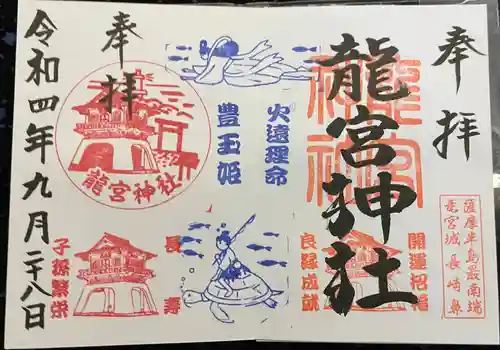 奉拝
龍宮神社
薩摩半島最南端
竜宮城 長崎鼻
開運招福
良縁成就
火遠理命
豊玉姫
長寿
奉拝
龍宮神社
子孫繁栄
令和四年九月二十八日